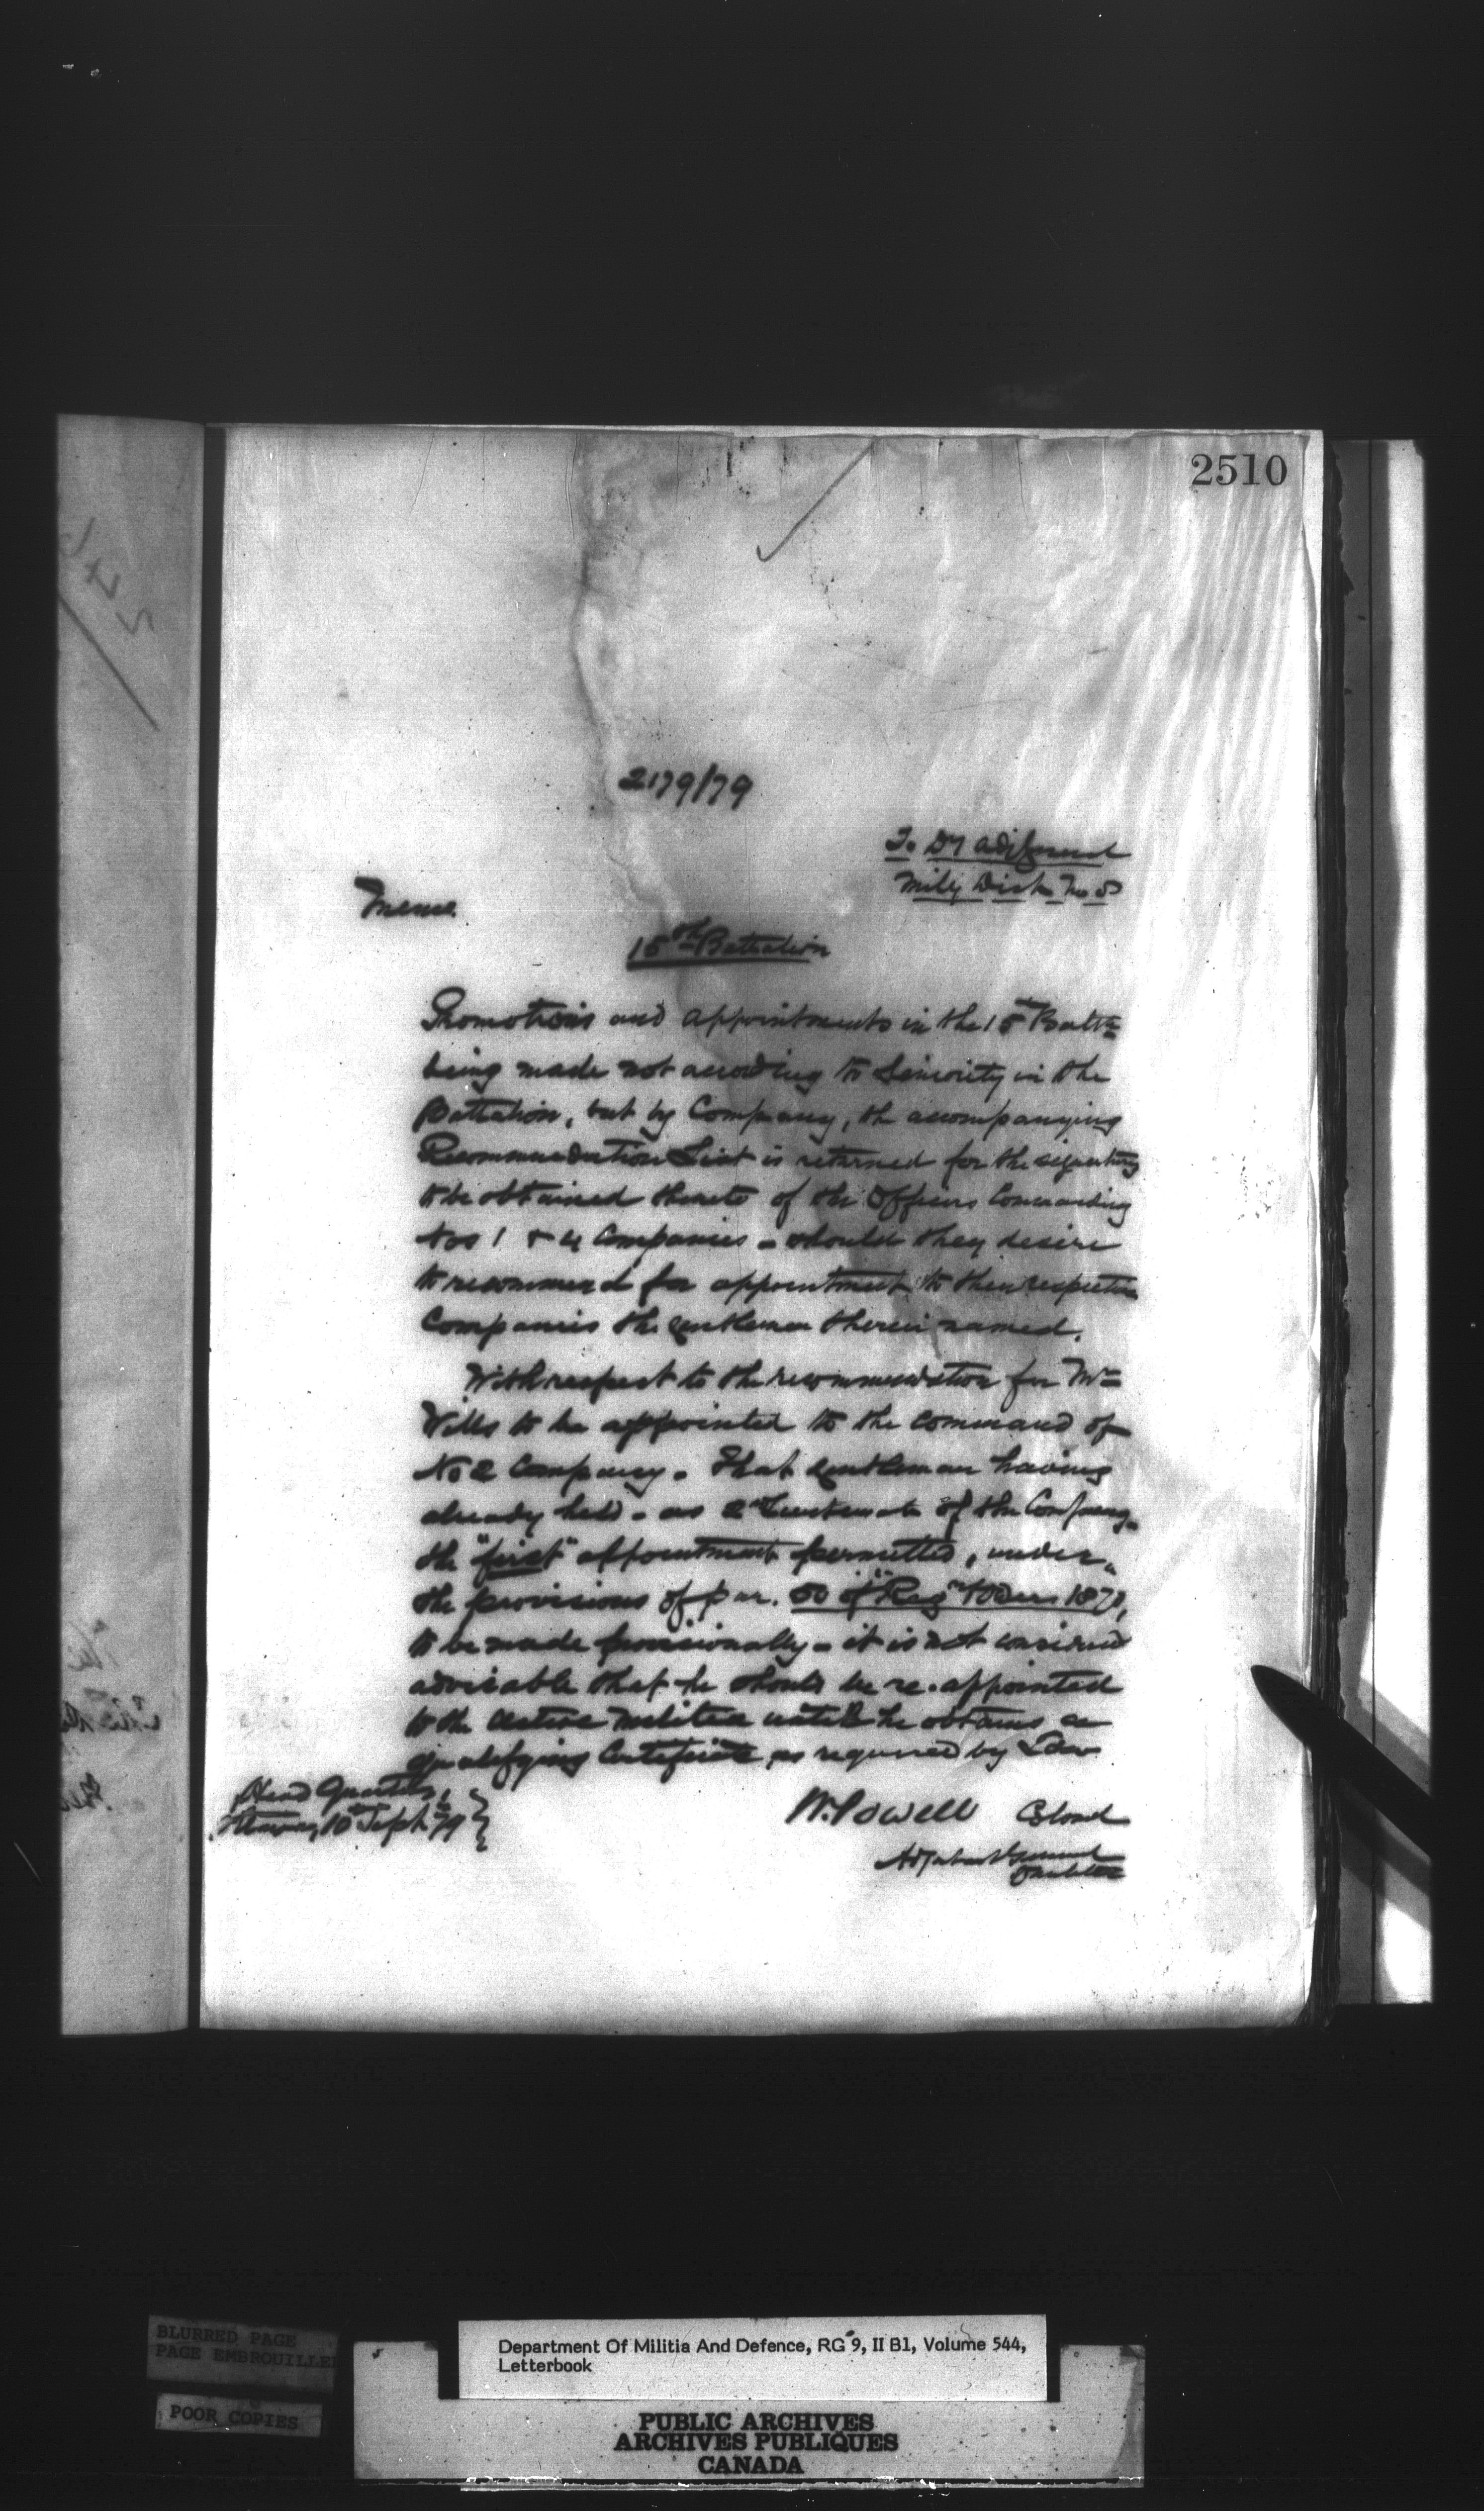 2510
2179/79
To Dy Adjt General
Mily Dist No
Memo
15th Battalion
Promotions and appointments in the 15th Battn
being made not according to Seniority in the
Battalion, but by Company, the accompanying
Recommendation List is returned for the signatures
to be obtained thereto of the Officers Commanding
Nos 1 & 4 Companies - should they desire
to recommend for appointment to their respective
Companies the gentlemen therein named.
With respect to the recommendation for Mr
Wills to be appointed to the command of
No 2 Company. That gentleman having
already held - as 2nd Lieutenant of the Company -
the "first" appointment permitted, under
the provisions of par. 50 of "Reg & Orders 1870,
to be made provisionally - it is not considered
advisable that he should be re-appointed
to the Active Militia until he obtains a
qualifying Certificate as required by Law
Head Quarters,
Ottawa, 10th Sept 79
W. Powell Colonel
Adjutant General
Militia
BLURRED PAGE
PAGE EMBROUILLEE
POOR COPIES
Department Of Militia And Defence, RG 9, II B1, Volume 544,
Letterbook
PUBLIC ARCHIVES
ARCHIVES PUBLIQUES
CANADA